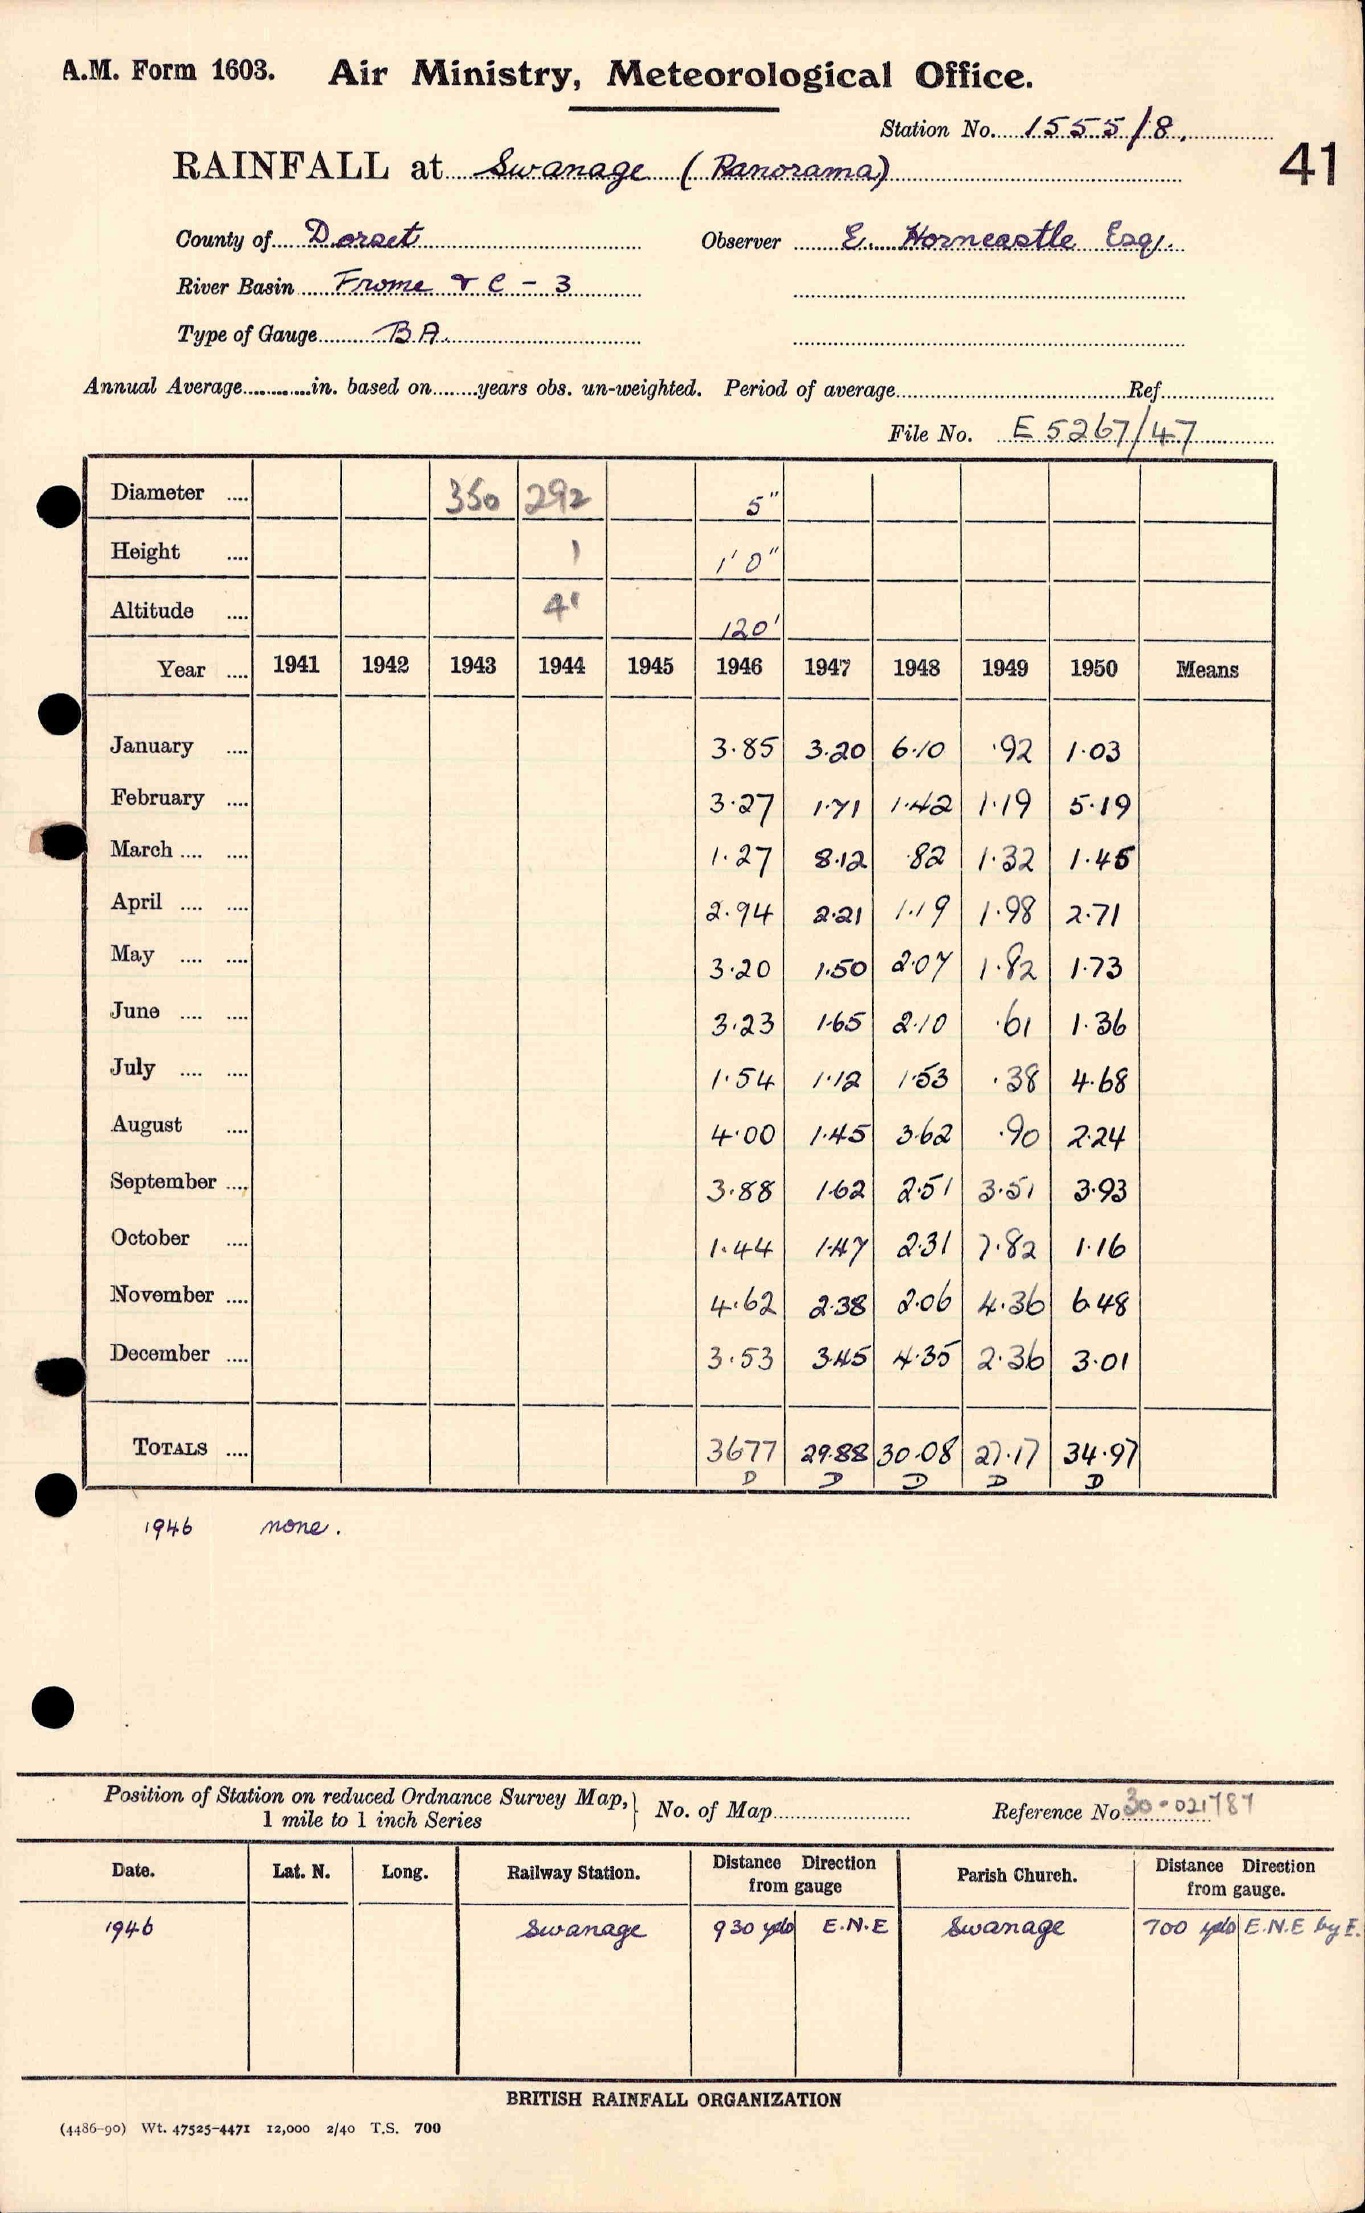 A.M. Form 1603. Air Ministry, Meteorological Office.
Station No. 1555/8.
41
RAINFALL at Swanage (Panorama)
County of Dorset Observer E. Horncastle Esq.
River Basin Frome & C - 3
Type of Gauge BA.
Annual Average in. based on years obs. un-weighted. Period of average Ref.
File No. E 5267/47
Diameter 350 292 5"
Height 1 1' 0"
Altitude 120'
Year 1941 1942 1943 1944 1945 1946 1947 1948 1949 1950 Means
January 3.85 3.20 6.10 .92 1.03
February 3.27 1.71 1.42 1.19 5.19
March 1.27 8.12 .82 1.32 1.45
April 2.94 2.21 1.19 1.98 2.71
May 3.20 1.50 2.07 1.82 1.73
June 3.23 1.65 2.10 .61 1.36
July 1.54 1.12 1.53 .38 4.68
August 4.00 1.45 3.62 .90 2.24
September 3.88 1.62 2.51 3.51 3.93
October 1.44 1.47 2.31 7.82 1.16
November 4.62 2.38 2.06 4.36 6.48
December 3.53 3.45 4.35 2.36 3.01
TOTALS 3677 29.88 30.08 27.17 34.97
D D D D D
1946 none.
Position of Station on reduced Ordnance Survey Map, 1 mile to 1 inch Series No. of Map Reference No. 30-021787
Date. Lat. N. Long. Railway Station. Distance Direction from gauge Parish Church. Distance Direction from gauge.
1946 Swanage 930 yds E.N.E Swanage 700 yds E.N.E by E.
BRITISH RAINFALL ORGANIZATION
(4486-90) Wt. 47525-4471 12,000 2/40 T.S. 700